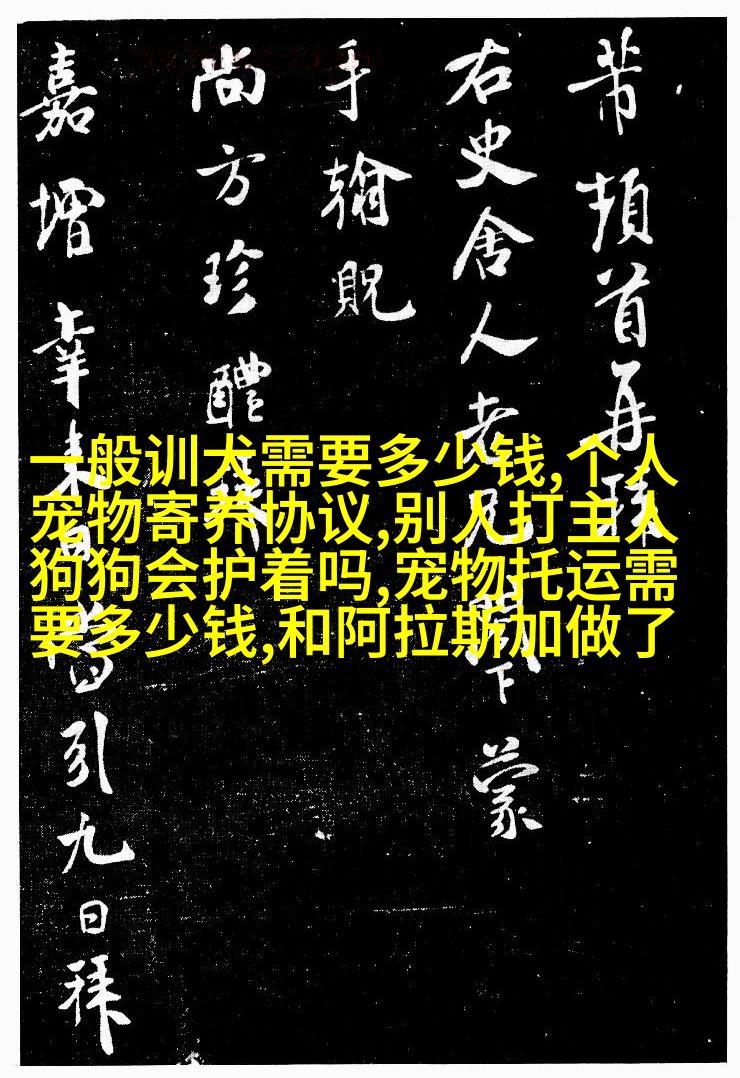 芾頓首再拜
右史舍人老兄下蒙
手翰貺
尚方珍醴
嘉增幸引九日拜
一般训犬需要多少钱,个人
宠物寄养协议,别人打主人
狗狗会护着吗,宠物托运需
要多少钱,和阿拉斯加做了